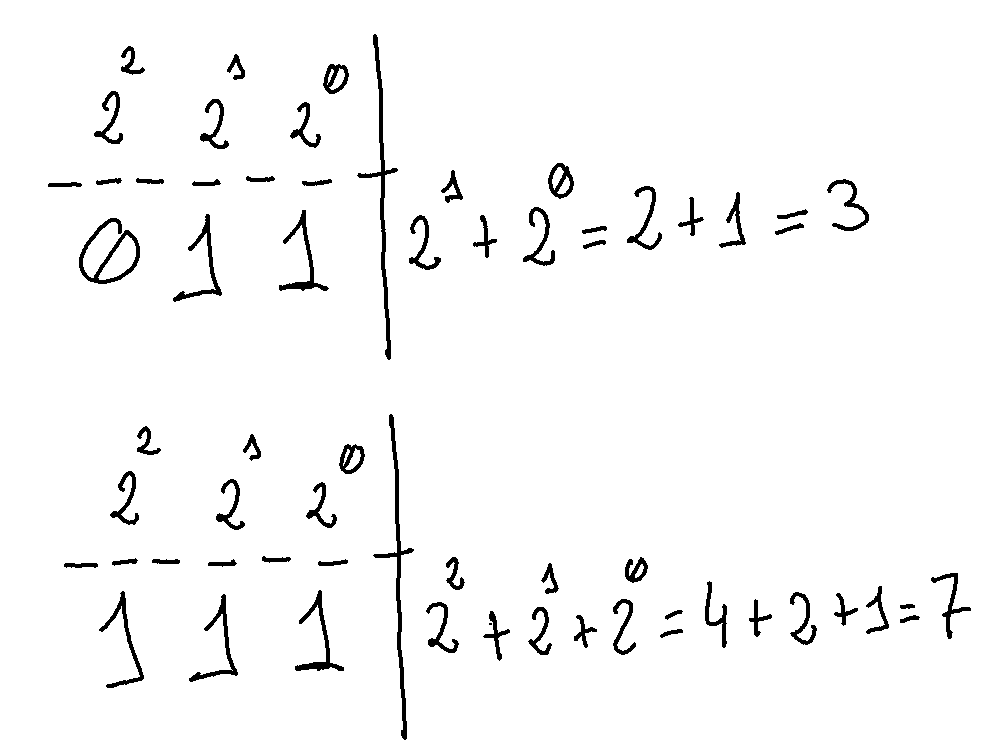 2² 2¹ 2⁰
0 1 1 | 2¹ + 2⁰ = 2 + 1 = 3
2² 2¹ 2⁰
1 1 1 | 2² + 2¹ + 2⁰ = 4 + 2 + 1 = 7